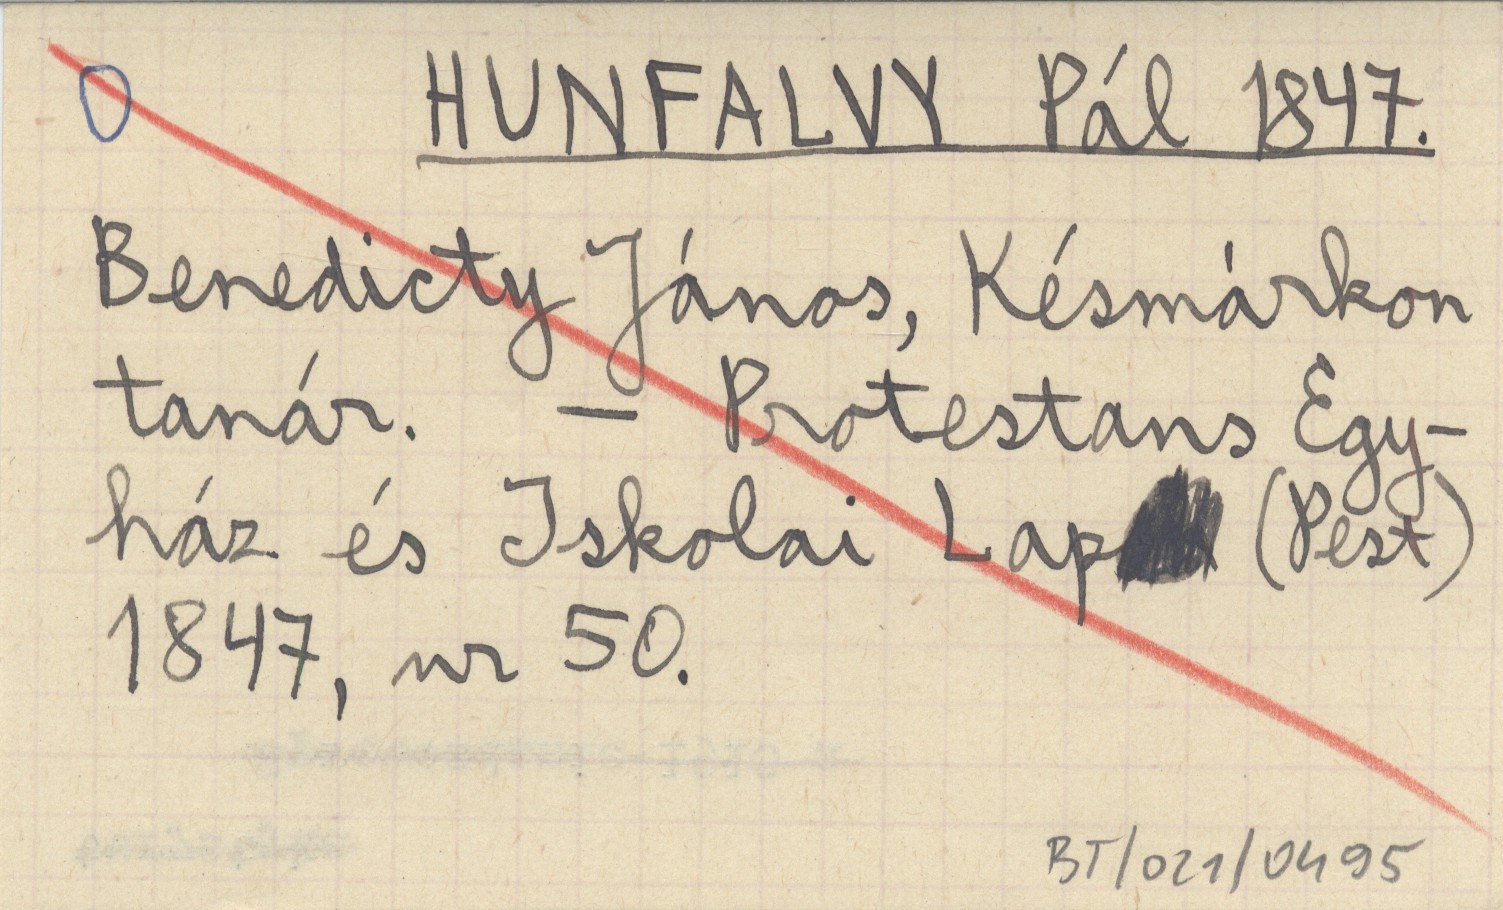 HUNFALVY Pál 1847.
Benedicty János, Késmárkon
tanár. — Protestans Egy-
ház és Iskolai Lap (Pest)
1847, nr 50.
BT/021/0495